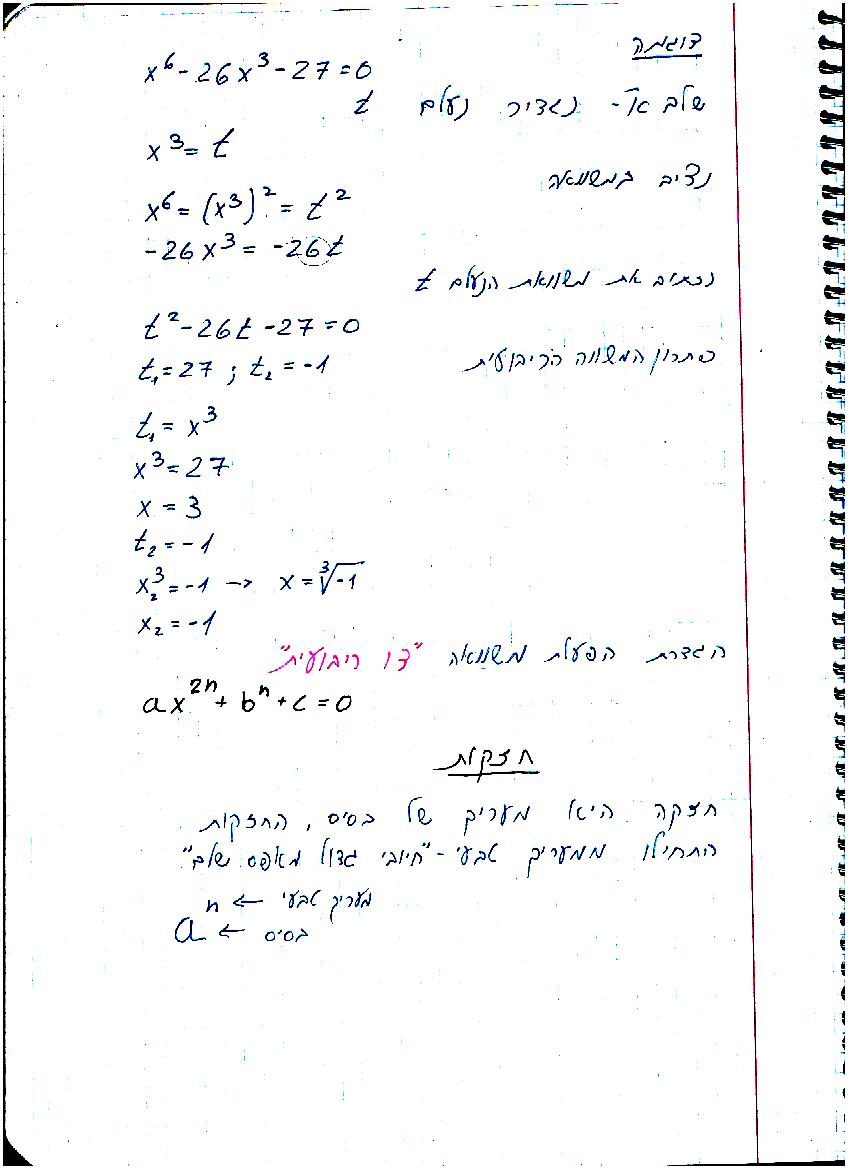 דוגמה
x⁶ - 26x³ - 27 = 0
שלב א'- נגדיר נעלם t
x³ = t
נציב במשוואה
x⁶ = (x³)² = t²
-26x³ = -26t
נכתוב את משוואת הנעלם t
t² - 26t - 27 = 0
פתרון המשווה הריבועית
t₁ = 27 ; t₂ = -1
t₁ = x³
x³ = 27
x = 3
t₂ = -1
x₂³ = -1 → x = ∛-1
x₂ = -1
הגדרת הפעלת משוואה "דו ריבועית"
ax²ⁿ + bⁿ + c = 0
חזקות
חזקה היא מעריך של בסיס, החזקות
התחילו ממעריך טבעי - "חיובי גדול מאפס שלם"
n ← מעריך טבעי
a ← בסיס